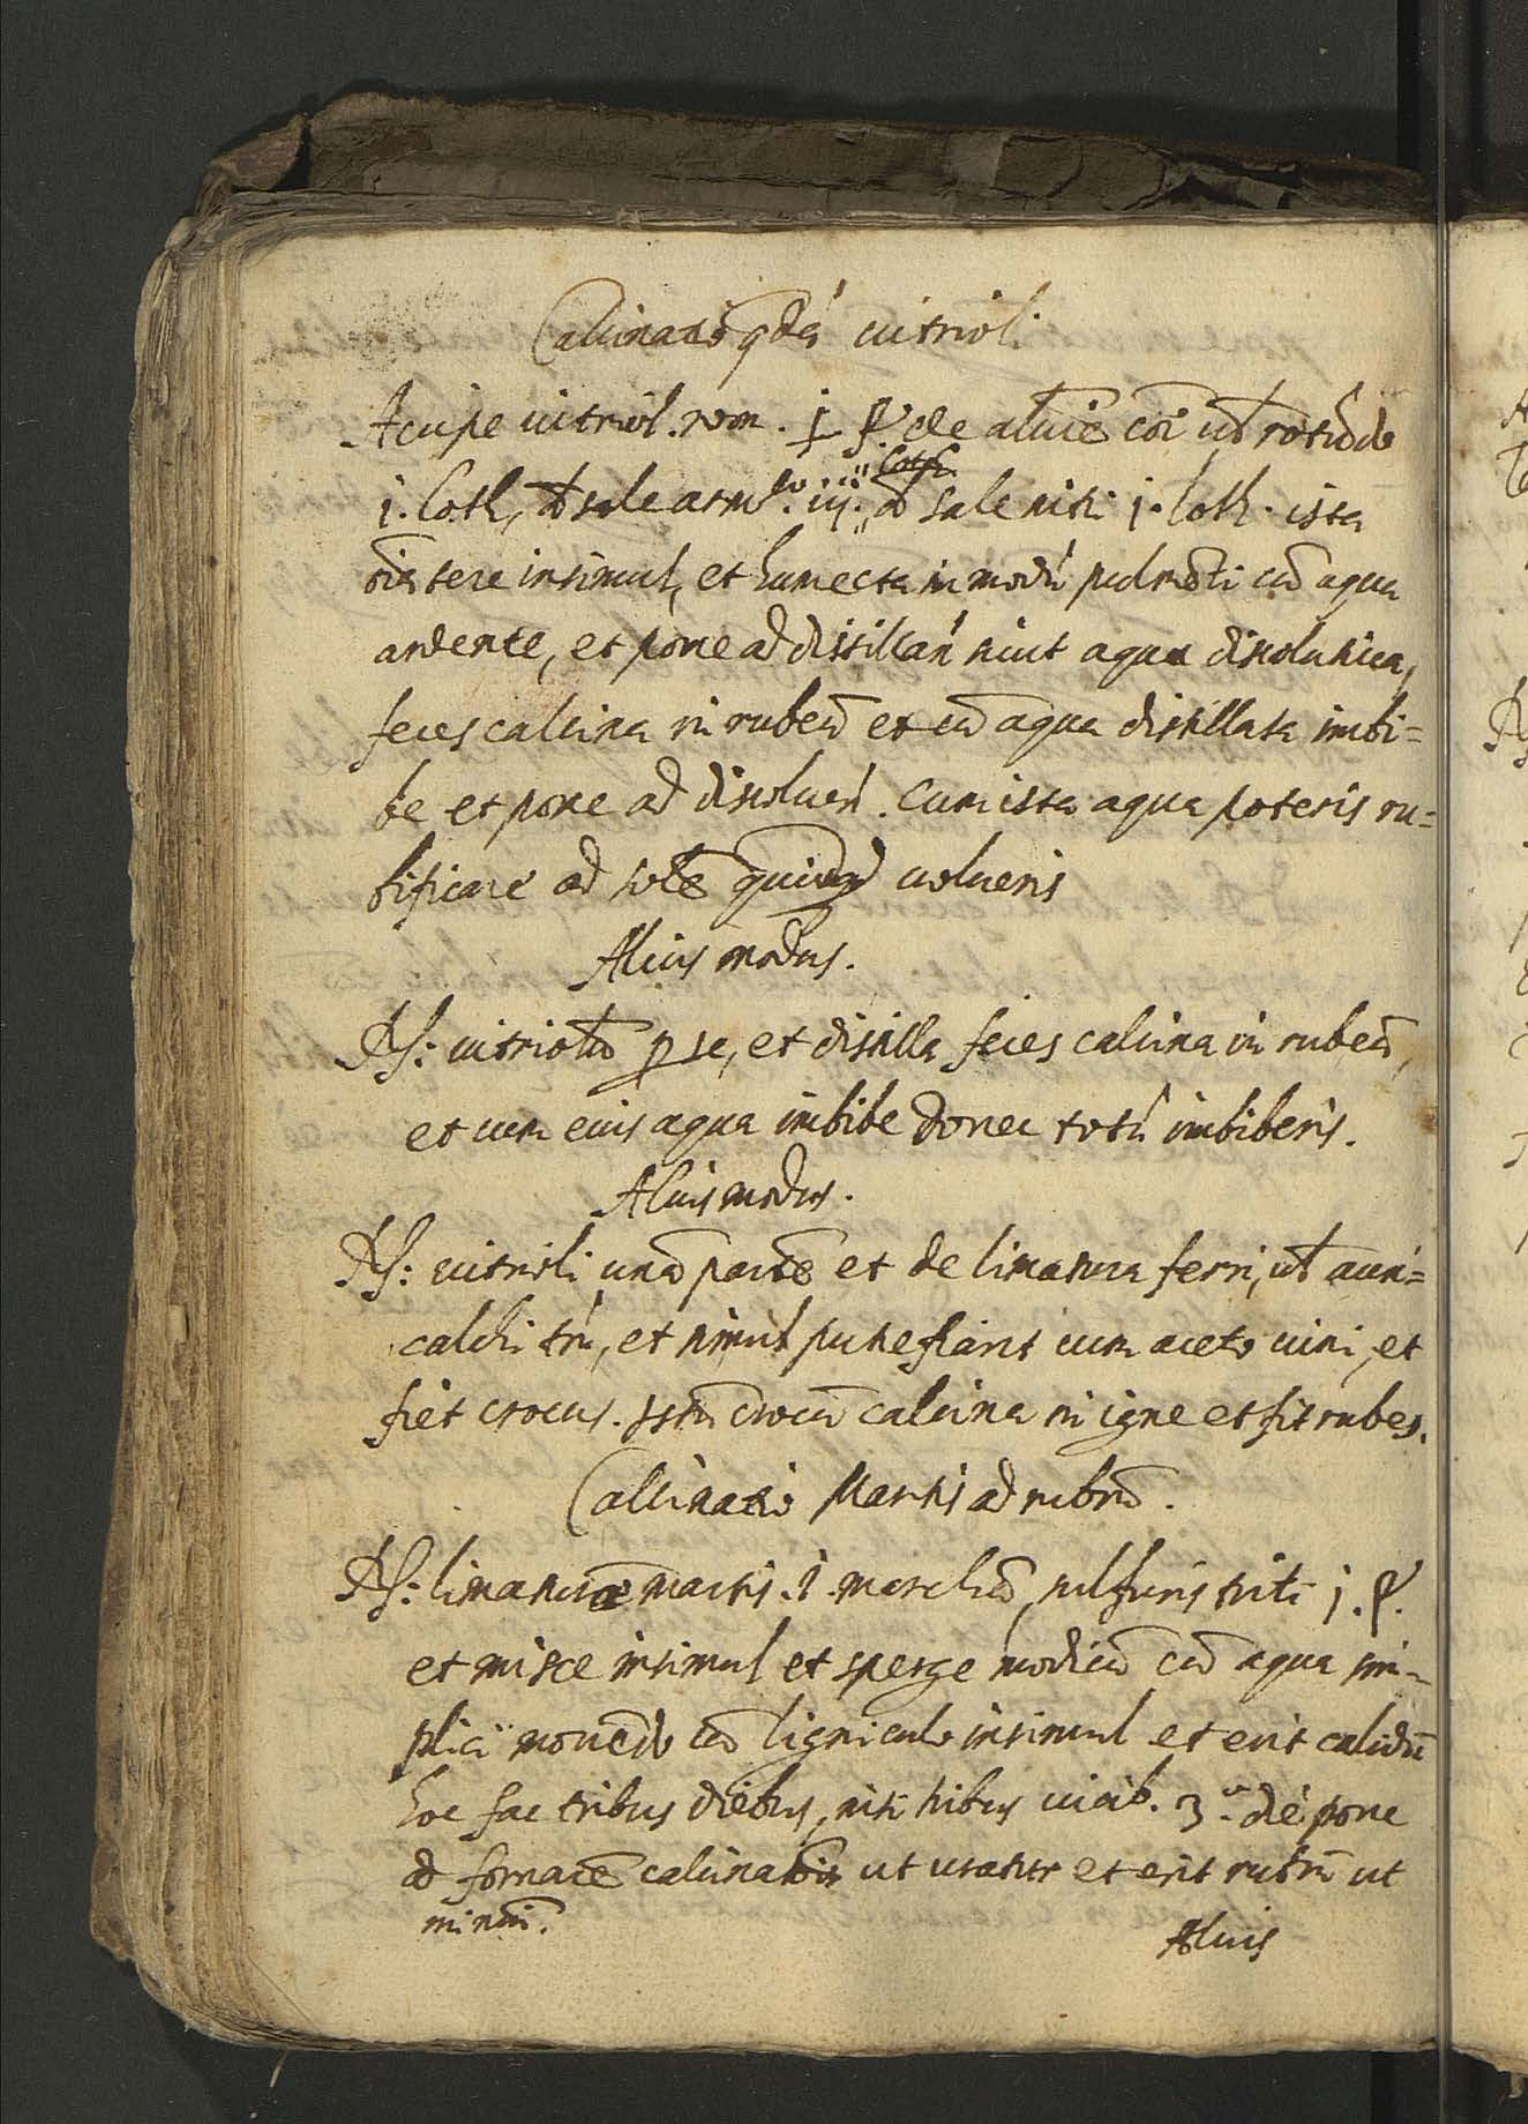 Calcinatiō qdā vitrioli
Accipe vitriol. rom. j ℔ de alūie cōi ūl rotūdo
j. loth, d sale arm.° iij. d sale nitri j. loth. ista
oīa tere insimul, et humecta in modū pulmēti cū aqua
ardente, et pone ad distillan̄ sicut aqua disolutiua,
feces calcina in rubeū et cū aqua distillata imbi=
be et pone ad disoluen̄. Cum ista aqua poteris ru=
bificare ad solē volueris
Alius modus.
Rp: vitriolū p se, et distilla feces calcina in rubeū,
et cum eius aqua imbibe donec totū imbiberis.
Alius modus.
Rp: vitrioli unā partē et de limatura ferri, ūl auri=
calchi tm̄, et simul putrefiant cum aceto vini, et
fiet crocus. Istū crocū calcina in igne et fit rubeꝰ.
Calcinatio Martis ad rubrū.
Rp: limaturæ martis .1. marchā, sulfuris triti j. ℔.
et misce insimul et sperge modicū cū aqua sim=
plici mouēdo cū ligniculo insimul et erit calidū
hoc fac tribus diebus, tribus vicib. 3.ᵃ die pone
ad fornacē calcinatōis ut uratur et erit rubrū ut
miniū.
Alius